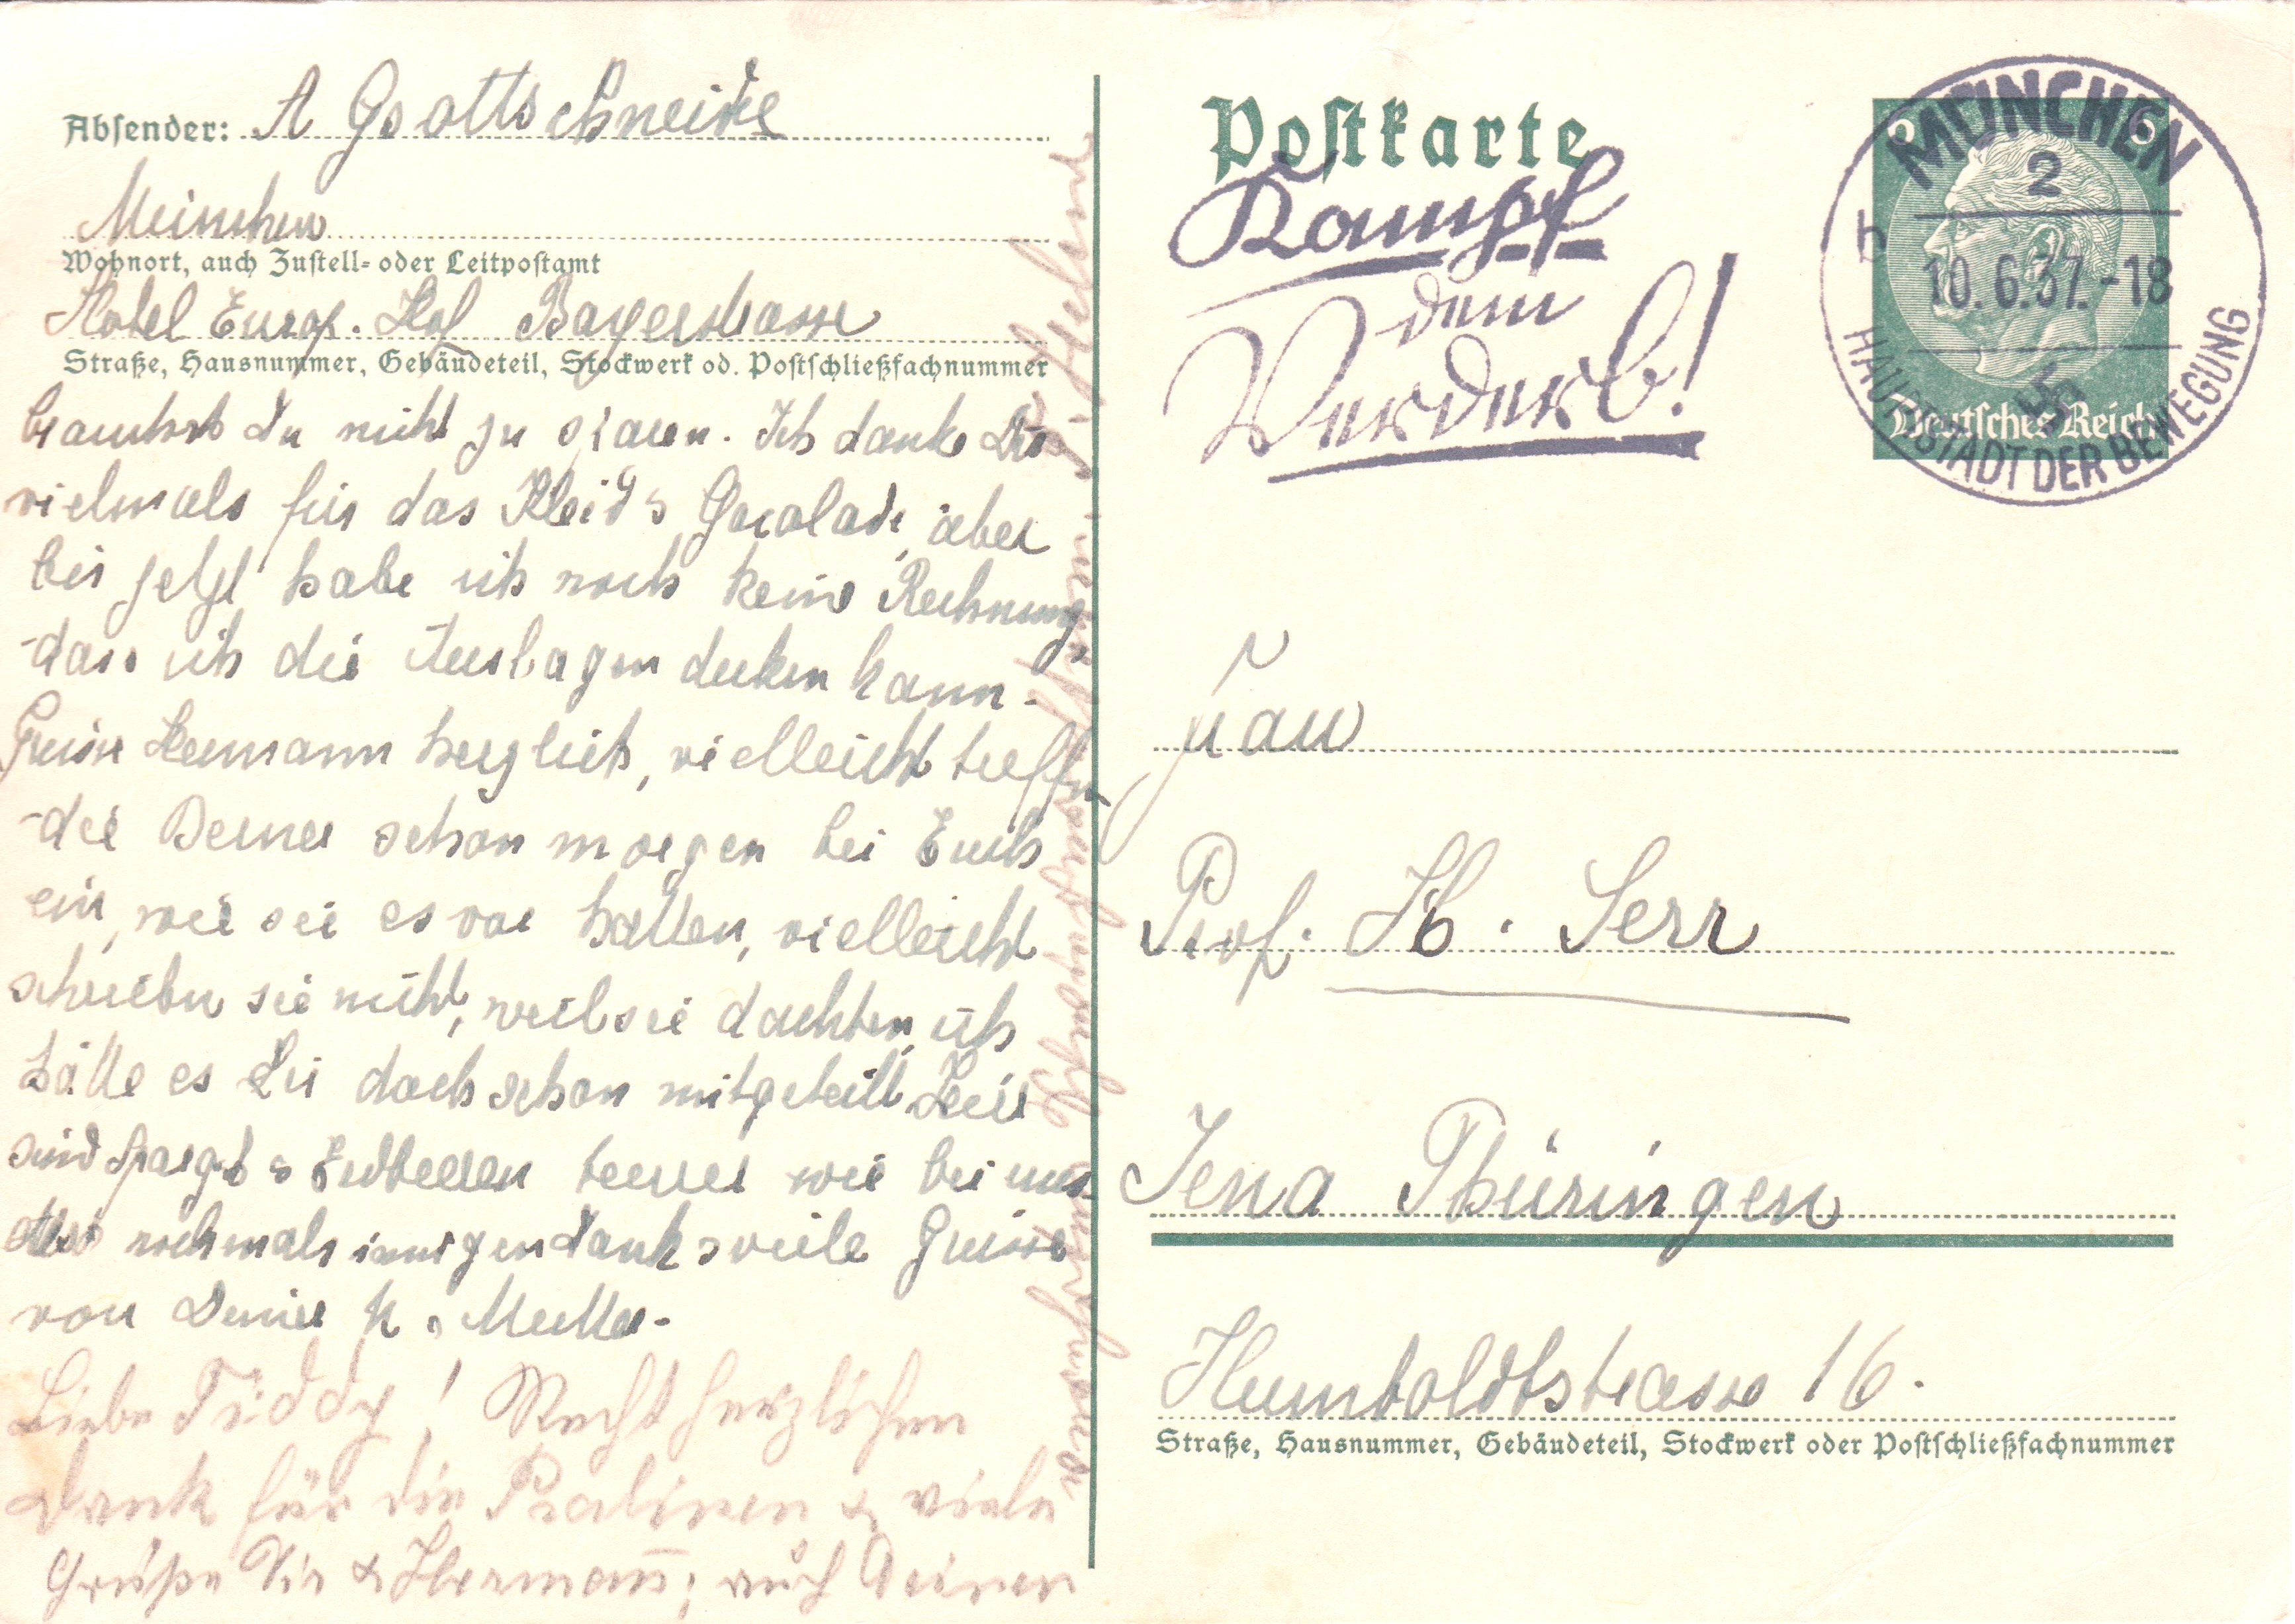 Absender: A Gottschneide
München
Wohnort, auch Zustell- oder Leitpostamt
Hotel Europ. Hof Bayerstrasse
Straße, Hausnummer, Gebäudeteil, Stockwerk od. Postschließfachnummer
brauchst du nicht zu sparen. Ich danke Dir
vielmals für das Kleid & Chocolade, aber
bis jetzt habe ich noch keine Rechnung,
dass ich die Auslagen decken kann.
Grüsse Hermann herzlich, vielleicht treffen
die Berner schon morgen bei Euch
ein, wie sie es vor hatten, vielleicht
schrieben sie nicht, weil sie dachten, ich
hätte es Dir doch schon mitgeteilt. Hier
sind Spargel & Erdbeeren teurer wie bei uns
Also nochmals innigen Dank & viele Grüsse
von Deiner Mutter.
Liebe Teddy! Recht herzlichen
Dank für die Pralinen & viele
Grüße Dir & Hermann, auch Deinen
Postkarte
Kampf
dem
Verderb!
MÜNCHEN
2
b
10.6.37.-18
HAUPTSTADT DER BEWEGUNG
6 6
Deutsches Reich
Frau
Prof. H. Serr
Jena Thüringen
Humboldtstrasse 16.
Straße, Hausnummer, Gebäudeteil, Stockwerk oder Postschließfachnummer